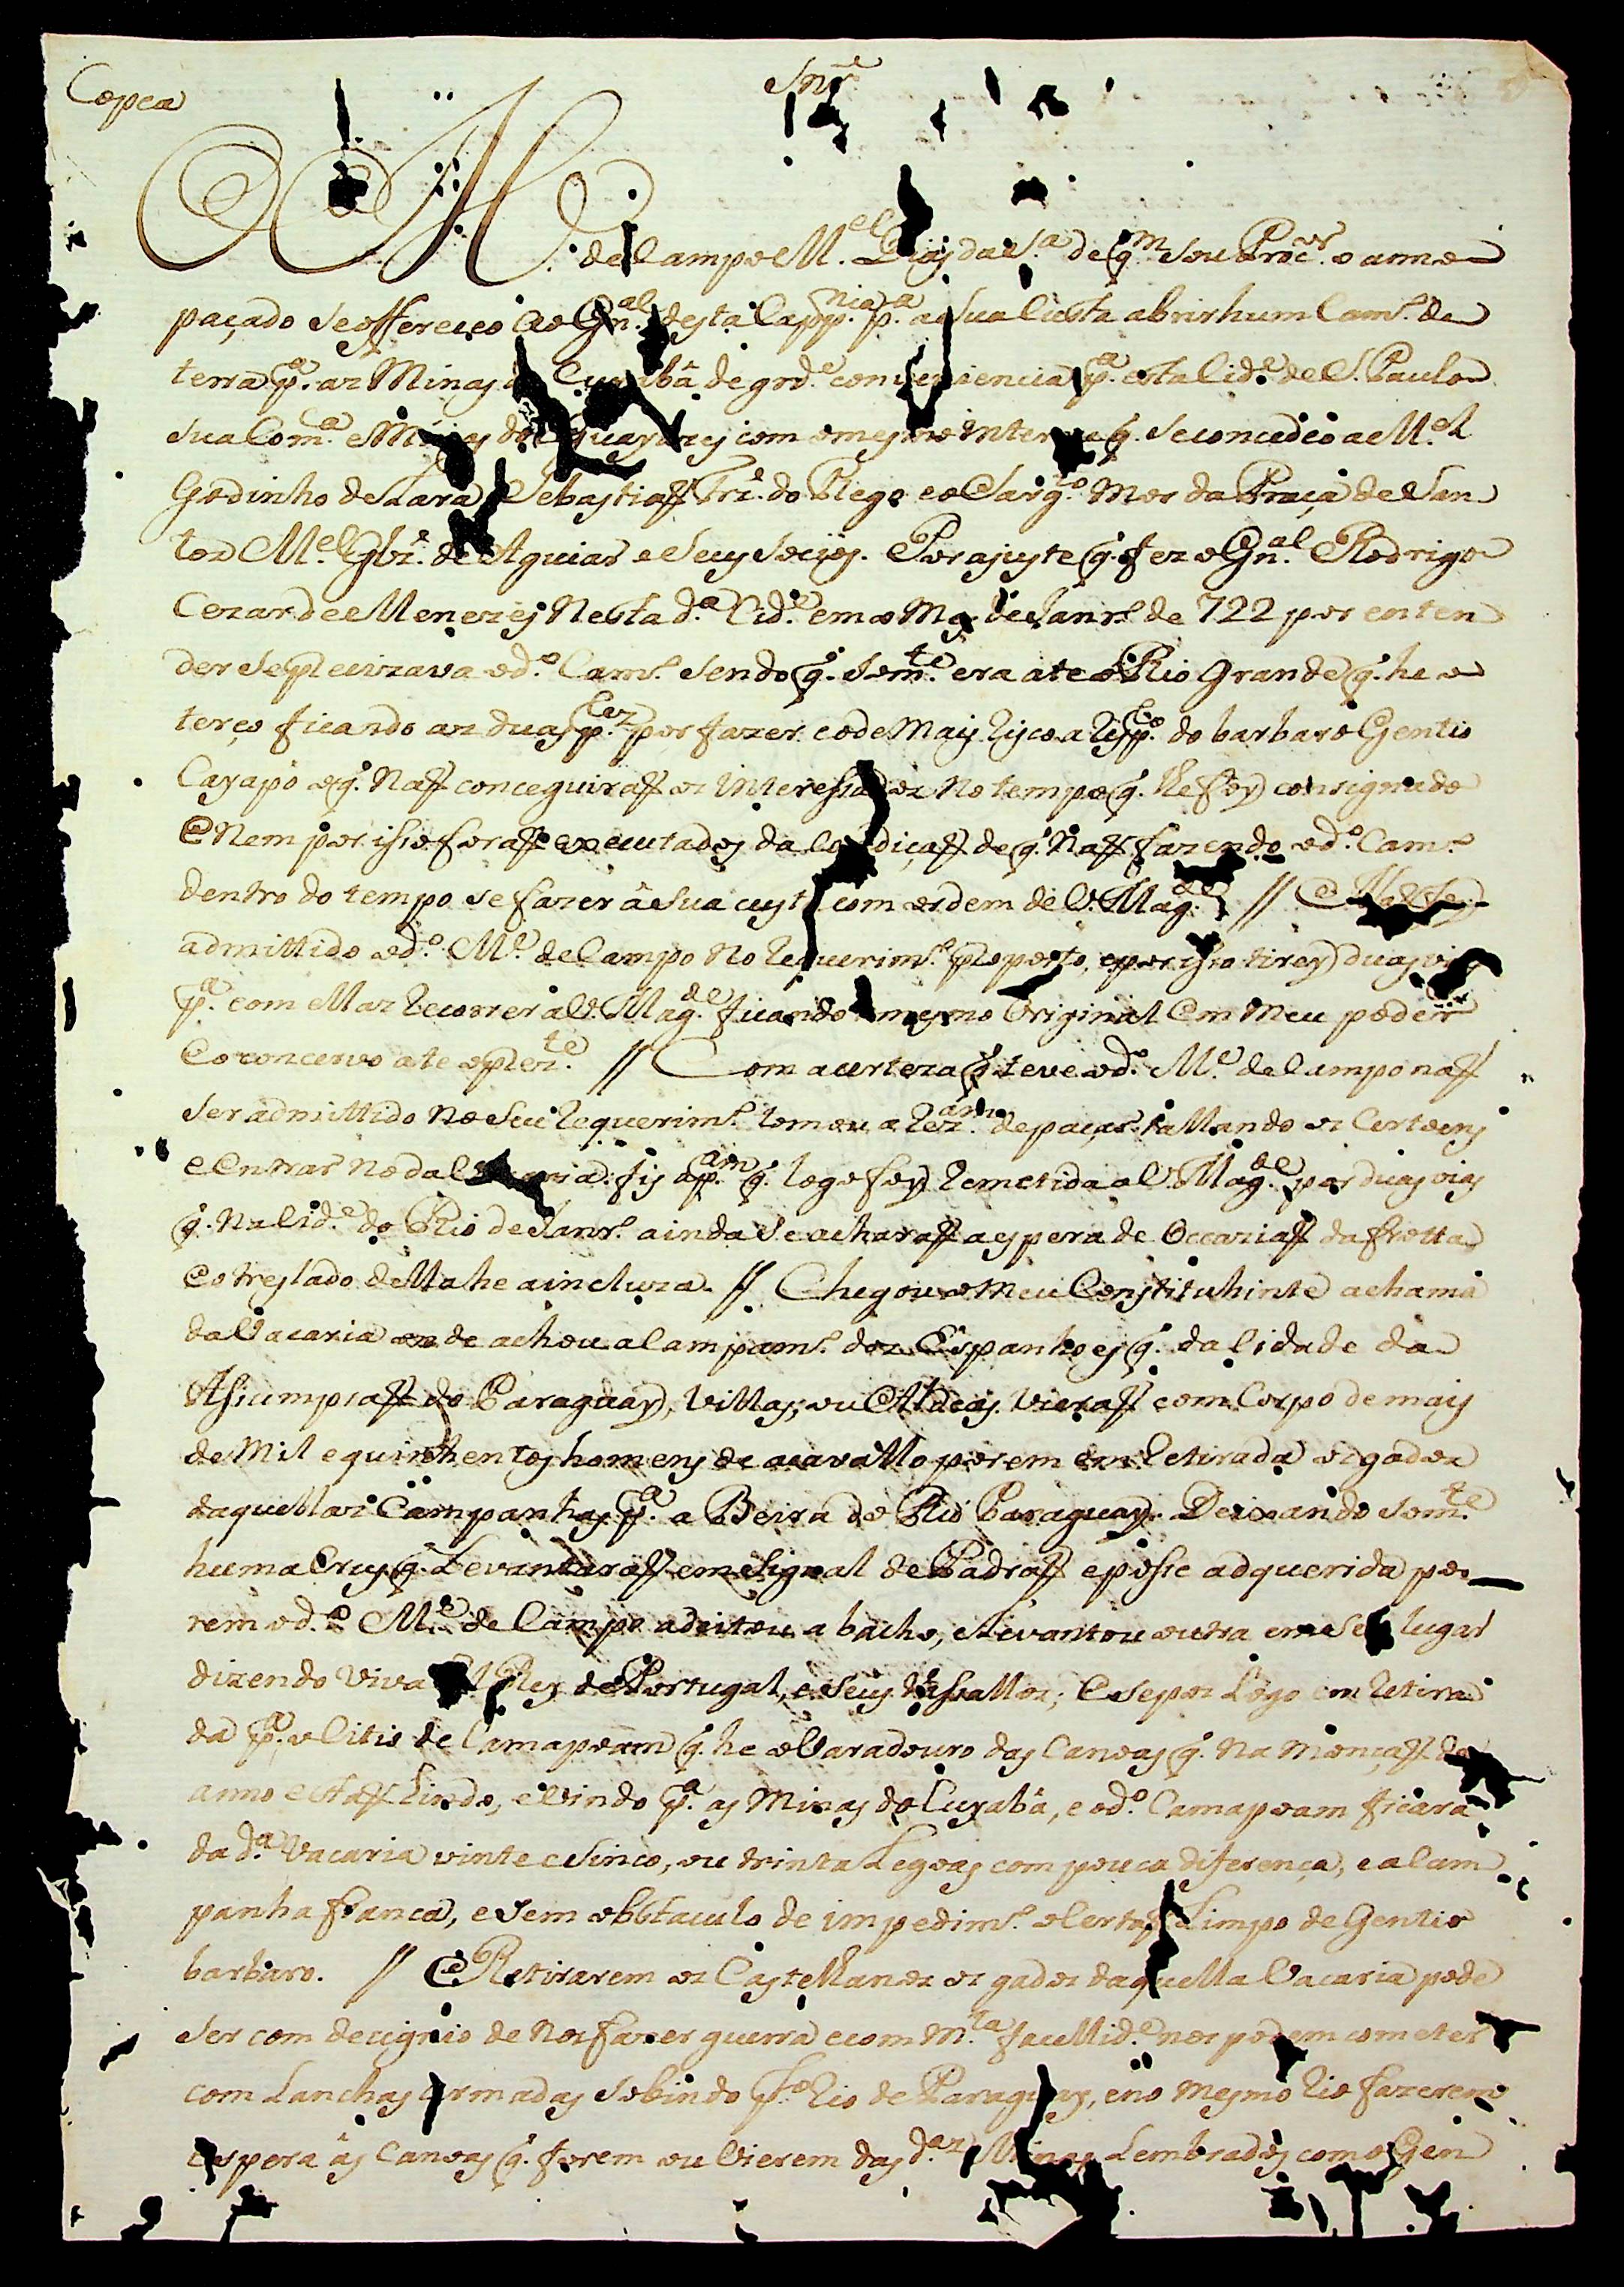 Copea
Snr̃
M.e de Campo M.el Dias da S.a de q.m sou Proc.or o anno
paçado se offereceo ao Gn.al desta Capp.nia p.a a sua custa abrir hum Cam.o de
terra p.a az Minas Cuyabâ de grd.e conveniencia p.a esta Cid.e de S. Paulo
sua Com.a e Minas dos Guayazes com o mesmo q. se concedeo a M.el
Godinho de Lara, Sebastiaõ Frz̃. do Rego e o Sarg.to Mor da Praça de San
tos M.el Glz̃. de Aguiar e seus socios. Por ajuste q. fez o Gn.al Rodrigo
Cezar de Menezes Nesta d.a Cid.e em o M.es de Janr.o de 722 por enten
der se precizava o d.o Cam.o sendo q. som.te era ate o Rio Grande q. he o
terço ficando az duas p.tez por fazer e o de mais risco a resp.to do barbaro Gentio
Cayapo o q. Naõ conceguiraõ oz interessadoz No tempo q. lhe foy consignado
e Nem por isso foraõ executados da Condiçaõ de q. Naõ fazendo o d.o Cam.o
dentro do tempo se fazer â sua custa com ordem de V. Mag.de // E Naõ sey
admittido o d.o M.e de Campo No requerim.o proposto, e por isso tirey duas vias
p.a com ellaz recorrer a V. Mag.de ficando o mesmo Original em meu poder
e o concervo ate o prez.te // Com a certeza q. teve o d.o M.e de Campo naõ
ser admittido No seu requerim.o tomou a rez.am de paçar talhando oz Certoens
e entrar No da fis a p.am q. logo foy remetida a V. Mag.de por duas vias
q. Na Cid.e do Rio de Janr.o ainda se acharaõ a espera de Occaziaõ da frotta
e o treslado della he a incluza. // Chegou o meu Constituhinte a chama
da Vacaria onde achou a Campam.o doz Espanhoes q. da Cidade da
Assumpsaõ do Paraguay, Villas, ou Aldeas. Vieraõ com Corpo de mais
de Mil e quinhentos homens de acavallo porem em retirada os gadoz
daquellaz Campanhas p.a a Beira do Rio Paraguay. Deixando som.te
huma Crus q. Levantaraõ em signal de Padraõ e posse adquerida po
rem o d.o M.e de Campo a deitou a bacho, e Levantou outra em seu lugar
dizendo Viva El Rey de Portugal, e seus Vassalloz; E se poz Logo em retira
da p.a o Citio de Camapoam q. he o Varadouro das Canoas q. Na Monçaõ do
anno estaõ hindo, e vindo p.a as Minas do Cuyabâ, e o d.o Camapoam ficara
da d.a Vacaria vinte e sinco, ou trinta Legoas com pouca diferença, e a Cam
panha franca, e sem obstaculo de impedim.o o Certaõ Limpo de Gentio
barbaro. // E Retirarem oz Castelhanoz oz gadoz daquella Vacaria pode
ser com decignio de Nos fazer guerra e com m.ta facellid.e nos podem cometer
com Lanchas armadas sobindo p.lo rio de Paraguay, e no mesmo rio fazerem
espera âs Canoas q. forem ou vierem das d.az Minas Lembrados como o Gen